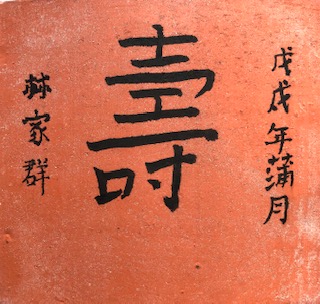 戊戌年蒲月
壽
林家群